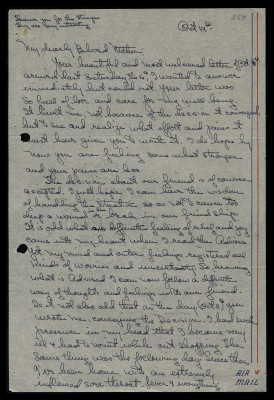 Thank you for the
They are very interesting
Oct 14th
My dearly Beloved Mother
Your beautiful and most welcomed letter of Oct 4th
arrived last Saturday the 6th. I wanted to answer
immediately but could not. Your letter was
so full of love and care for my well being
it hurt me, not because of the decision it conveyed,
but to see and realize what effort and pains it
must have given you to write it. I do hope by
now you are feeling some what stronger
and your pains are less.
The decision about our friend is of course
accepted. I just hope I can have the wisdom
of handling the situation so as not to cause too
deep a wound or break in our friend ship.
It is odd what a different feeling of relief and joy
came into my heart when I read the Advice.
Yet my mind and outer feelings registered all
kinds of worries and uncertainty. So knowing
what is Advised I can now follow a definite
way of thought and feelings with our friend.
Is it not also odd that on the day (Oct 4th) you
wrote me, conveying the Decision, I had such
pressure in my head that I became very
ill & had to vomit while out shopping. The
same thing was the following day. Since then
I've been home with an extremely
inflamed sore throat, fever & everything
AIR
MAIL